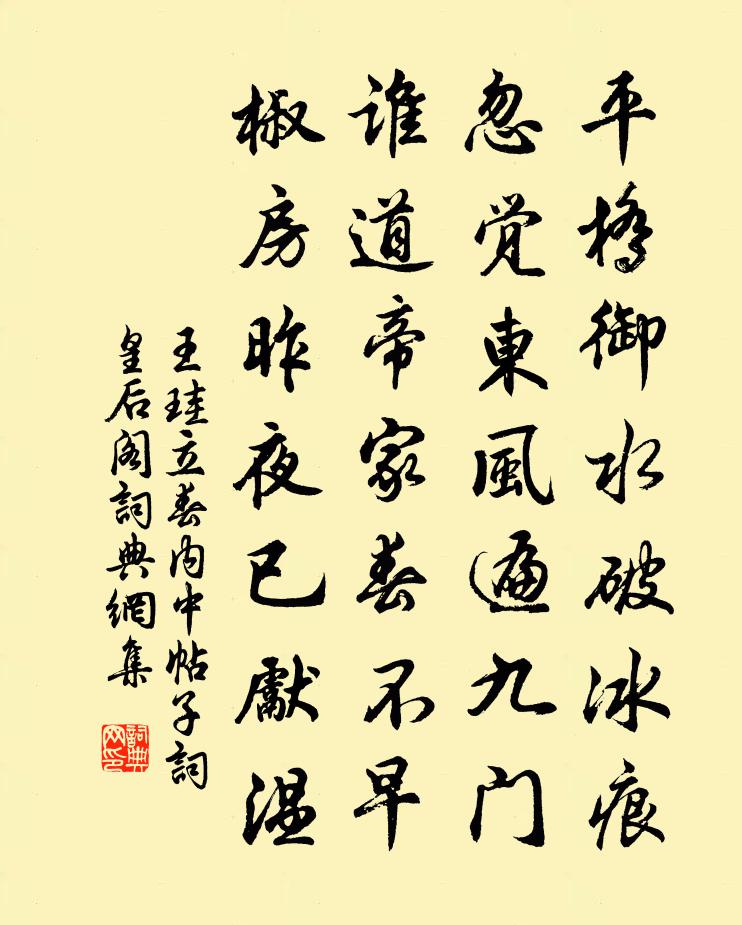 平橋御水破冰痕
忽覺東風遍九门
谁道帝家春不早
椒房昨夜已獻温
王珪立春内中帖子詞
皇后阁詞典網集
詞典
网印